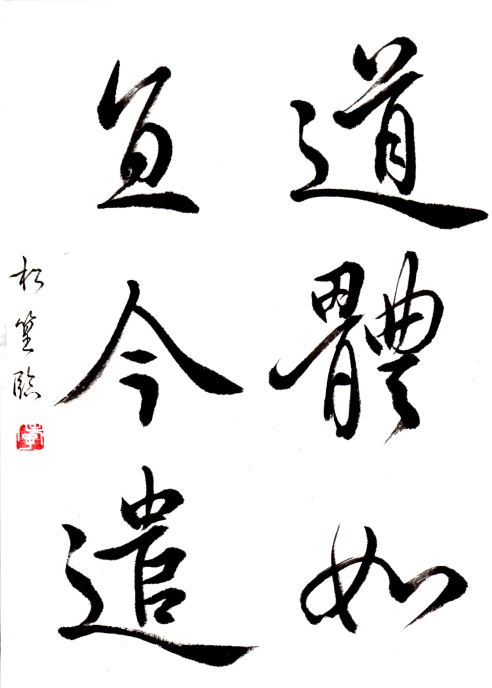 道體如
宜今遣
松笙臨